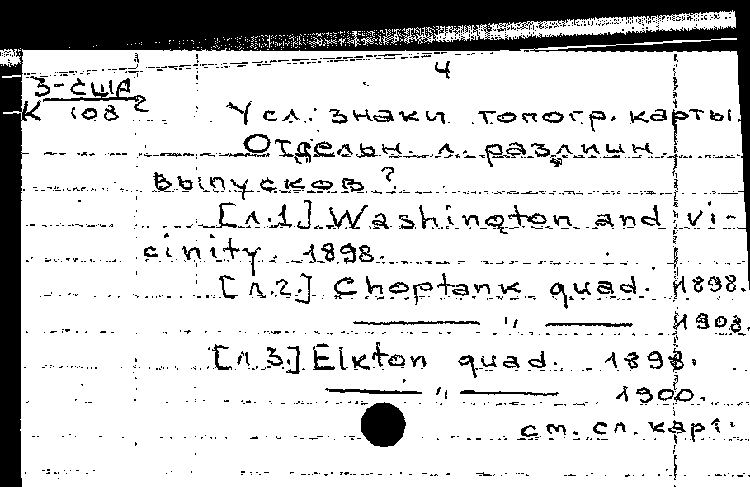 4
З-США
К 108 2
Усл. знаки топогр. карты.
Отдельн. л. различн.
выпусков?
[л.1] Washington and vi-
cinity. 1898.
[л.2.] Choptank quad. 1898.
——— " ——— 1908.
[л.3.] Elkton quad. 1898.
——— " ——— 1900.
см. сл. карт.